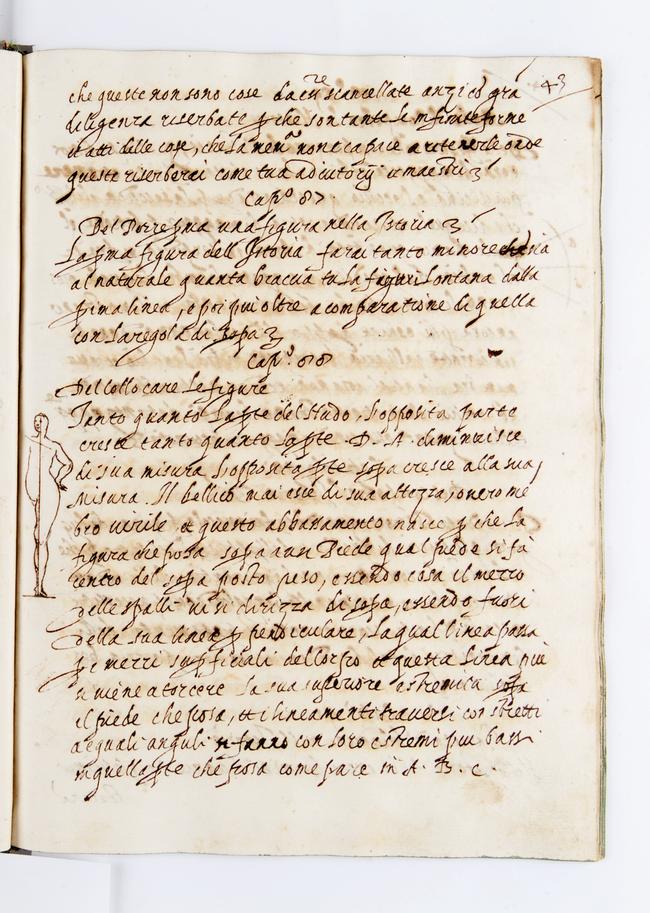 43
che queste non sono cose da essere scancellate anzi cõ grã
diligenza riserbate p̱ che son tante le infinite forme
et atti delle cose, che la memª non è capace a ritenerle onde
queste riserberai come tua adiutorij e maestri
Capº. 87.
Del Porre p̱ma una figura nella Istoria
La p̱ma figura dell Istoria farai tanto minore che nã
al naturale quanta braccia tu la figuri lontana dalla
prima linea, e poi piu oltre a comparatione di quella
con la regola di sop̱a
Capº. 88
Del collocare le figure
Tanto quanto la p̱te del Nudo, l'opposita parte
cresce tanto quanto la p̱te D. A. diminuisce
di sua misura l'opposita p̱te sop̱a cresce alla sua
Misura. Il bellico mai esce di sua altezza, overo mē
bro virile et questo abbassamento nasce p̱ che la
figura che posa sop̱a a un Piede qual piede si fa
centro del sop̱a posto peso, essendo cosa il mezzo
delle spalli vi si dirizza di sop̱a, essendo fuori
della sua linea p̱pendiculare, la qual linea passa
p̱ i mezzi sup̱ficiali del corpo et questa linea piu
si viene a torcere la sua superiore estremita sop̱a
il piede che posa, et i lineamenti traversi constretti
a equali anguli si fanno con loro estremi piu bassi
in quella p̱te che posa come pare in A. B. C.